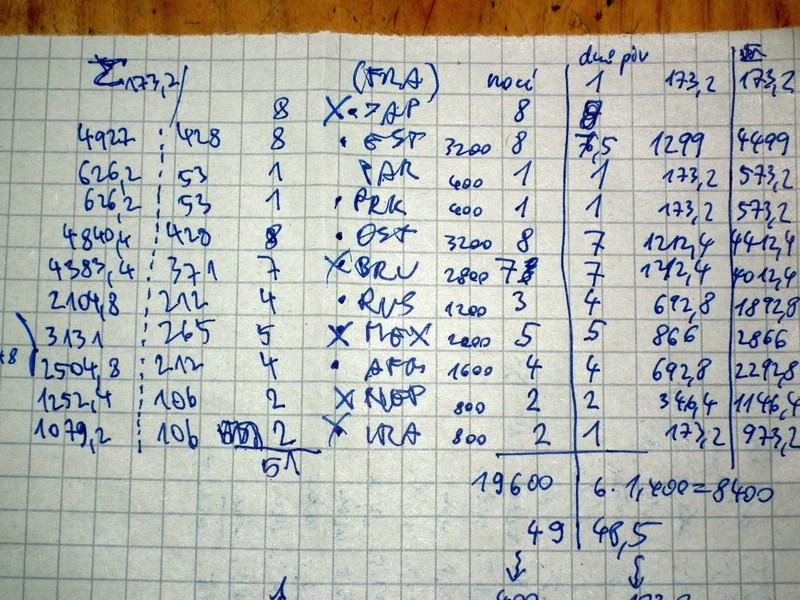 Σ 173,2 (FRA) nocí dní pův
1 173,2 173,2
8 X · JAP 8 8
4927 428 8 · EST 3200 8 7,5 1299 4499
626,2 53 1 PAR 400 1 1 173,2 573,2
626,2 53 1 · PRK 400 1 1 173,2 573,2
4840,4 428 8 · OST 3200 8 7 1212,4 4412,4
4383,4 371 7 X BRU 2800 7 7 1212,4 4012,4
2104,8 212 4 · RUS 1200 3 4 692,8 1892,8
3131 265 5 X MEX 2000 5 5 866 2866
2504,8 212 4 · AFG 1600 4 4 692,8 2292,8
1252,4 106 2 X NEP 800 2 2 346,4 1146,4
1079,2 106 2 X IRA 800 2 1 173,2 973,2
51
19600 6·1,400=8400
49 48,5